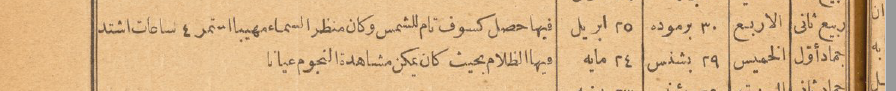 ربيع ثانى الاربع ٣٠ برموده ٢٥ ابريل فيها حصل كسوف تام للشمس وكان منظر السماء مهيبا استمر ٤ ساعات اشتد
جماد أول الخميس ٢٩ بشنس ٢٤ مايه فيها الظلام بحيث كان يمكن مشاهدة النجوم عيانا